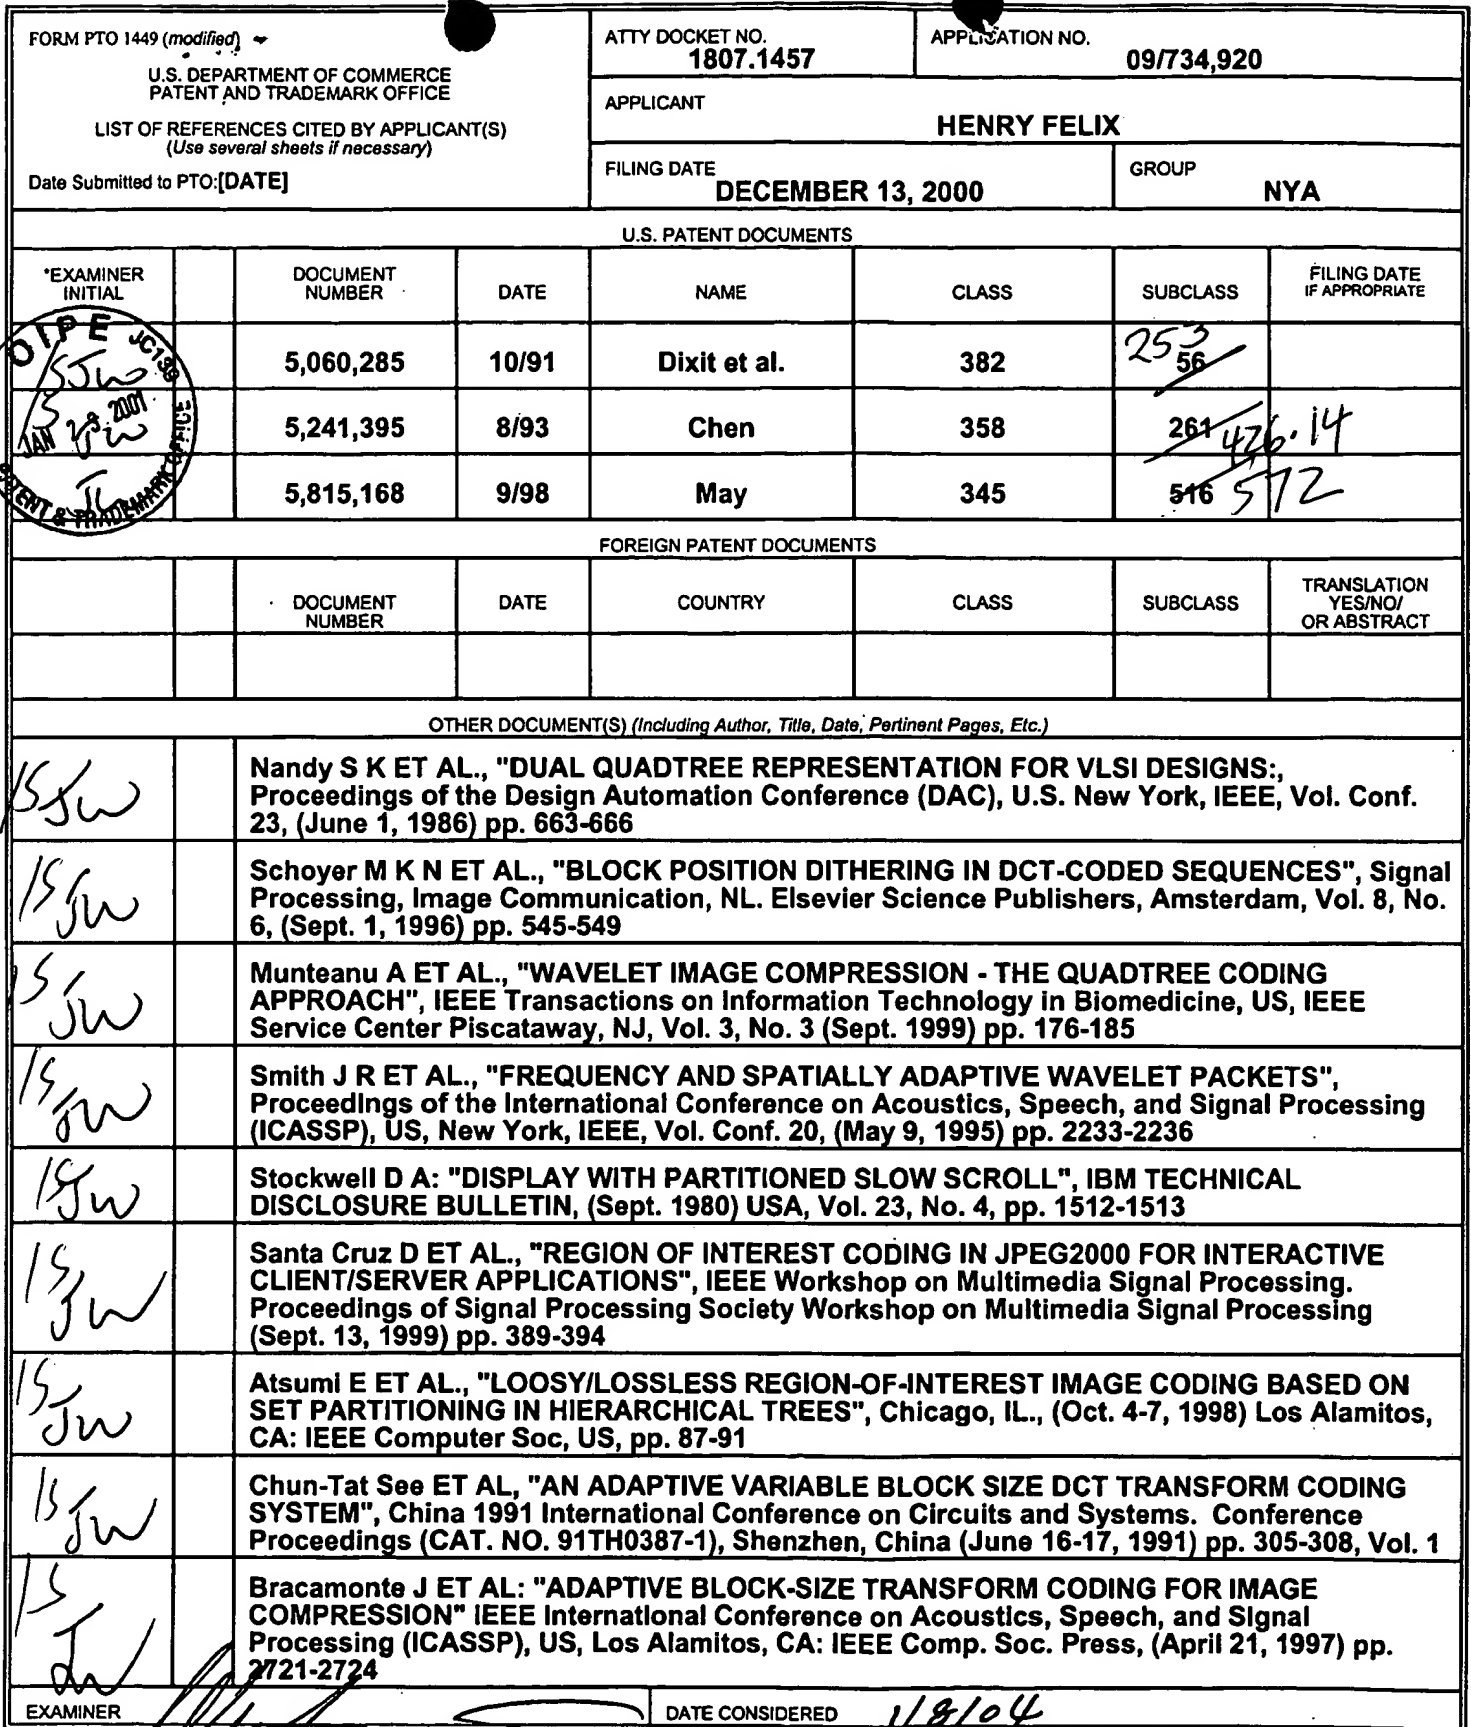 FORM PTO 1449 (modified)
U.S. DEPARTMENT OF COMMERCE
PATENT AND TRADEMARK OFFICE
LIST OF REFERENCES CITED BY APPLICANT(S)
(Use several sheets if necessary)
Date Submitted to PTO:[DATE]
ATTY DOCKET NO.
1807.1457
APPLICATION NO.
09/734,920
APPLICANT
HENRY FELIX
FILING DATE
DECEMBER 13, 2000
GROUP
NYA
U.S. PATENT DOCUMENTS
*EXAMINER
INITIAL
DOCUMENT
NUMBER
DATE
NAME
CLASS
SUBCLASS
FILING DATE
IF APPROPRIATE
OIPE JC139
JAN 23 2001
PATENT & TRADEMARK OFFICE
SJW
5,060,285 10/91 Dixit et al. 382 56 253
5,241,395 8/93 Chen 358 261 426.14
5,815,168 9/98 May 345 516 572
FOREIGN PATENT DOCUMENTS
DOCUMENT
NUMBER
DATE
COUNTRY
CLASS
SUBCLASS
TRANSLATION
YES/NO/
OR ABSTRACT
OTHER DOCUMENT(S) (Including Author, Title, Date, Pertinent Pages, Etc.)
Nandy S K ET AL., "DUAL QUADTREE REPRESENTATION FOR VLSI DESIGNS:,
Proceedings of the Design Automation Conference (DAC), U.S. New York, IEEE, Vol. Conf.
23, (June 1, 1986) pp. 663-666
Schoyer M K N ET AL., "BLOCK POSITION DITHERING IN DCT-CODED SEQUENCES", Signal
Processing, Image Communication, NL. Elsevier Science Publishers, Amsterdam, Vol. 8, No.
6, (Sept. 1, 1996) pp. 545-549
Munteanu A ET AL., "WAVELET IMAGE COMPRESSION - THE QUADTREE CODING
APPROACH", IEEE Transactions on Information Technology in Biomedicine, US, IEEE
Service Center Piscataway, NJ, Vol. 3, No. 3 (Sept. 1999) pp. 176-185
Smith J R ET AL., "FREQUENCY AND SPATIALLY ADAPTIVE WAVELET PACKETS",
Proceedings of the International Conference on Acoustics, Speech, and Signal Processing
(ICASSP), US, New York, IEEE, Vol. Conf. 20, (May 9, 1995) pp. 2233-2236
Stockwell D A: "DISPLAY WITH PARTITIONED SLOW SCROLL", IBM TECHNICAL
DISCLOSURE BULLETIN, (Sept. 1980) USA, Vol. 23, No. 4, pp. 1512-1513
Santa Cruz D ET AL., "REGION OF INTEREST CODING IN JPEG2000 FOR INTERACTIVE
CLIENT/SERVER APPLICATIONS", IEEE Workshop on Multimedia Signal Processing.
Proceedings of Signal Processing Society Workshop on Multimedia Signal Processing
(Sept. 13, 1999) pp. 389-394
Atsumi E ET AL., "LOOSY/LOSSLESS REGION-OF-INTEREST IMAGE CODING BASED ON
SET PARTITIONING IN HIERARCHICAL TREES", Chicago, IL., (Oct. 4-7, 1998) Los Alamitos,
CA: IEEE Computer Soc, US, pp. 87-91
Chun-Tat See ET AL, "AN ADAPTIVE VARIABLE BLOCK SIZE DCT TRANSFORM CODING
SYSTEM", China 1991 International Conference on Circuits and Systems. Conference
Proceedings (CAT. NO. 91TH0387-1), Shenzhen, China (June 16-17, 1991) pp. 305-308, Vol. 1
Bracamonte J ET AL: "ADAPTIVE BLOCK-SIZE TRANSFORM CODING FOR IMAGE
COMPRESSION" IEEE International Conference on Acoustics, Speech, and Signal
Processing (ICASSP), US, Los Alamitos, CA: IEEE Comp. Soc. Press, (April 21, 1997) pp.
2721-2724
EXAMINER
DATE CONSIDERED 1/8/04